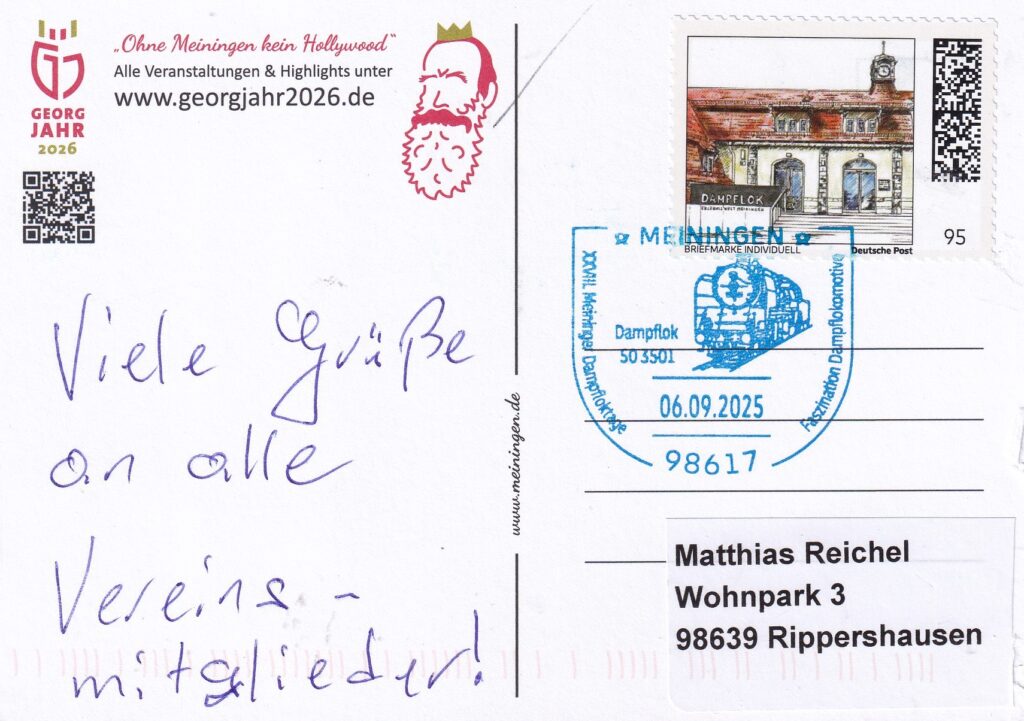 GEORG
JAHR
2026
„Ohne Meiningen kein Hollywood“
Alle Veranstaltungen & Highlights unter
www.georgjahr2026.de
Viele Grüße
an alle
Vereins-
mitglieder!
www.meiningen.de
DAMPFLOK
ERLEBNIS WELT MEININGEN
BRIEFMARKE INDIVIDUELL
Deutsche Post
95
MEININGEN
XXVIII. Meininger Dampfloktage
Dampflok
50 3501
Faszination Dampflokomotive
06.09.2025
98617
Matthias Reichel
Wohnpark 3
98639 Rippershausen